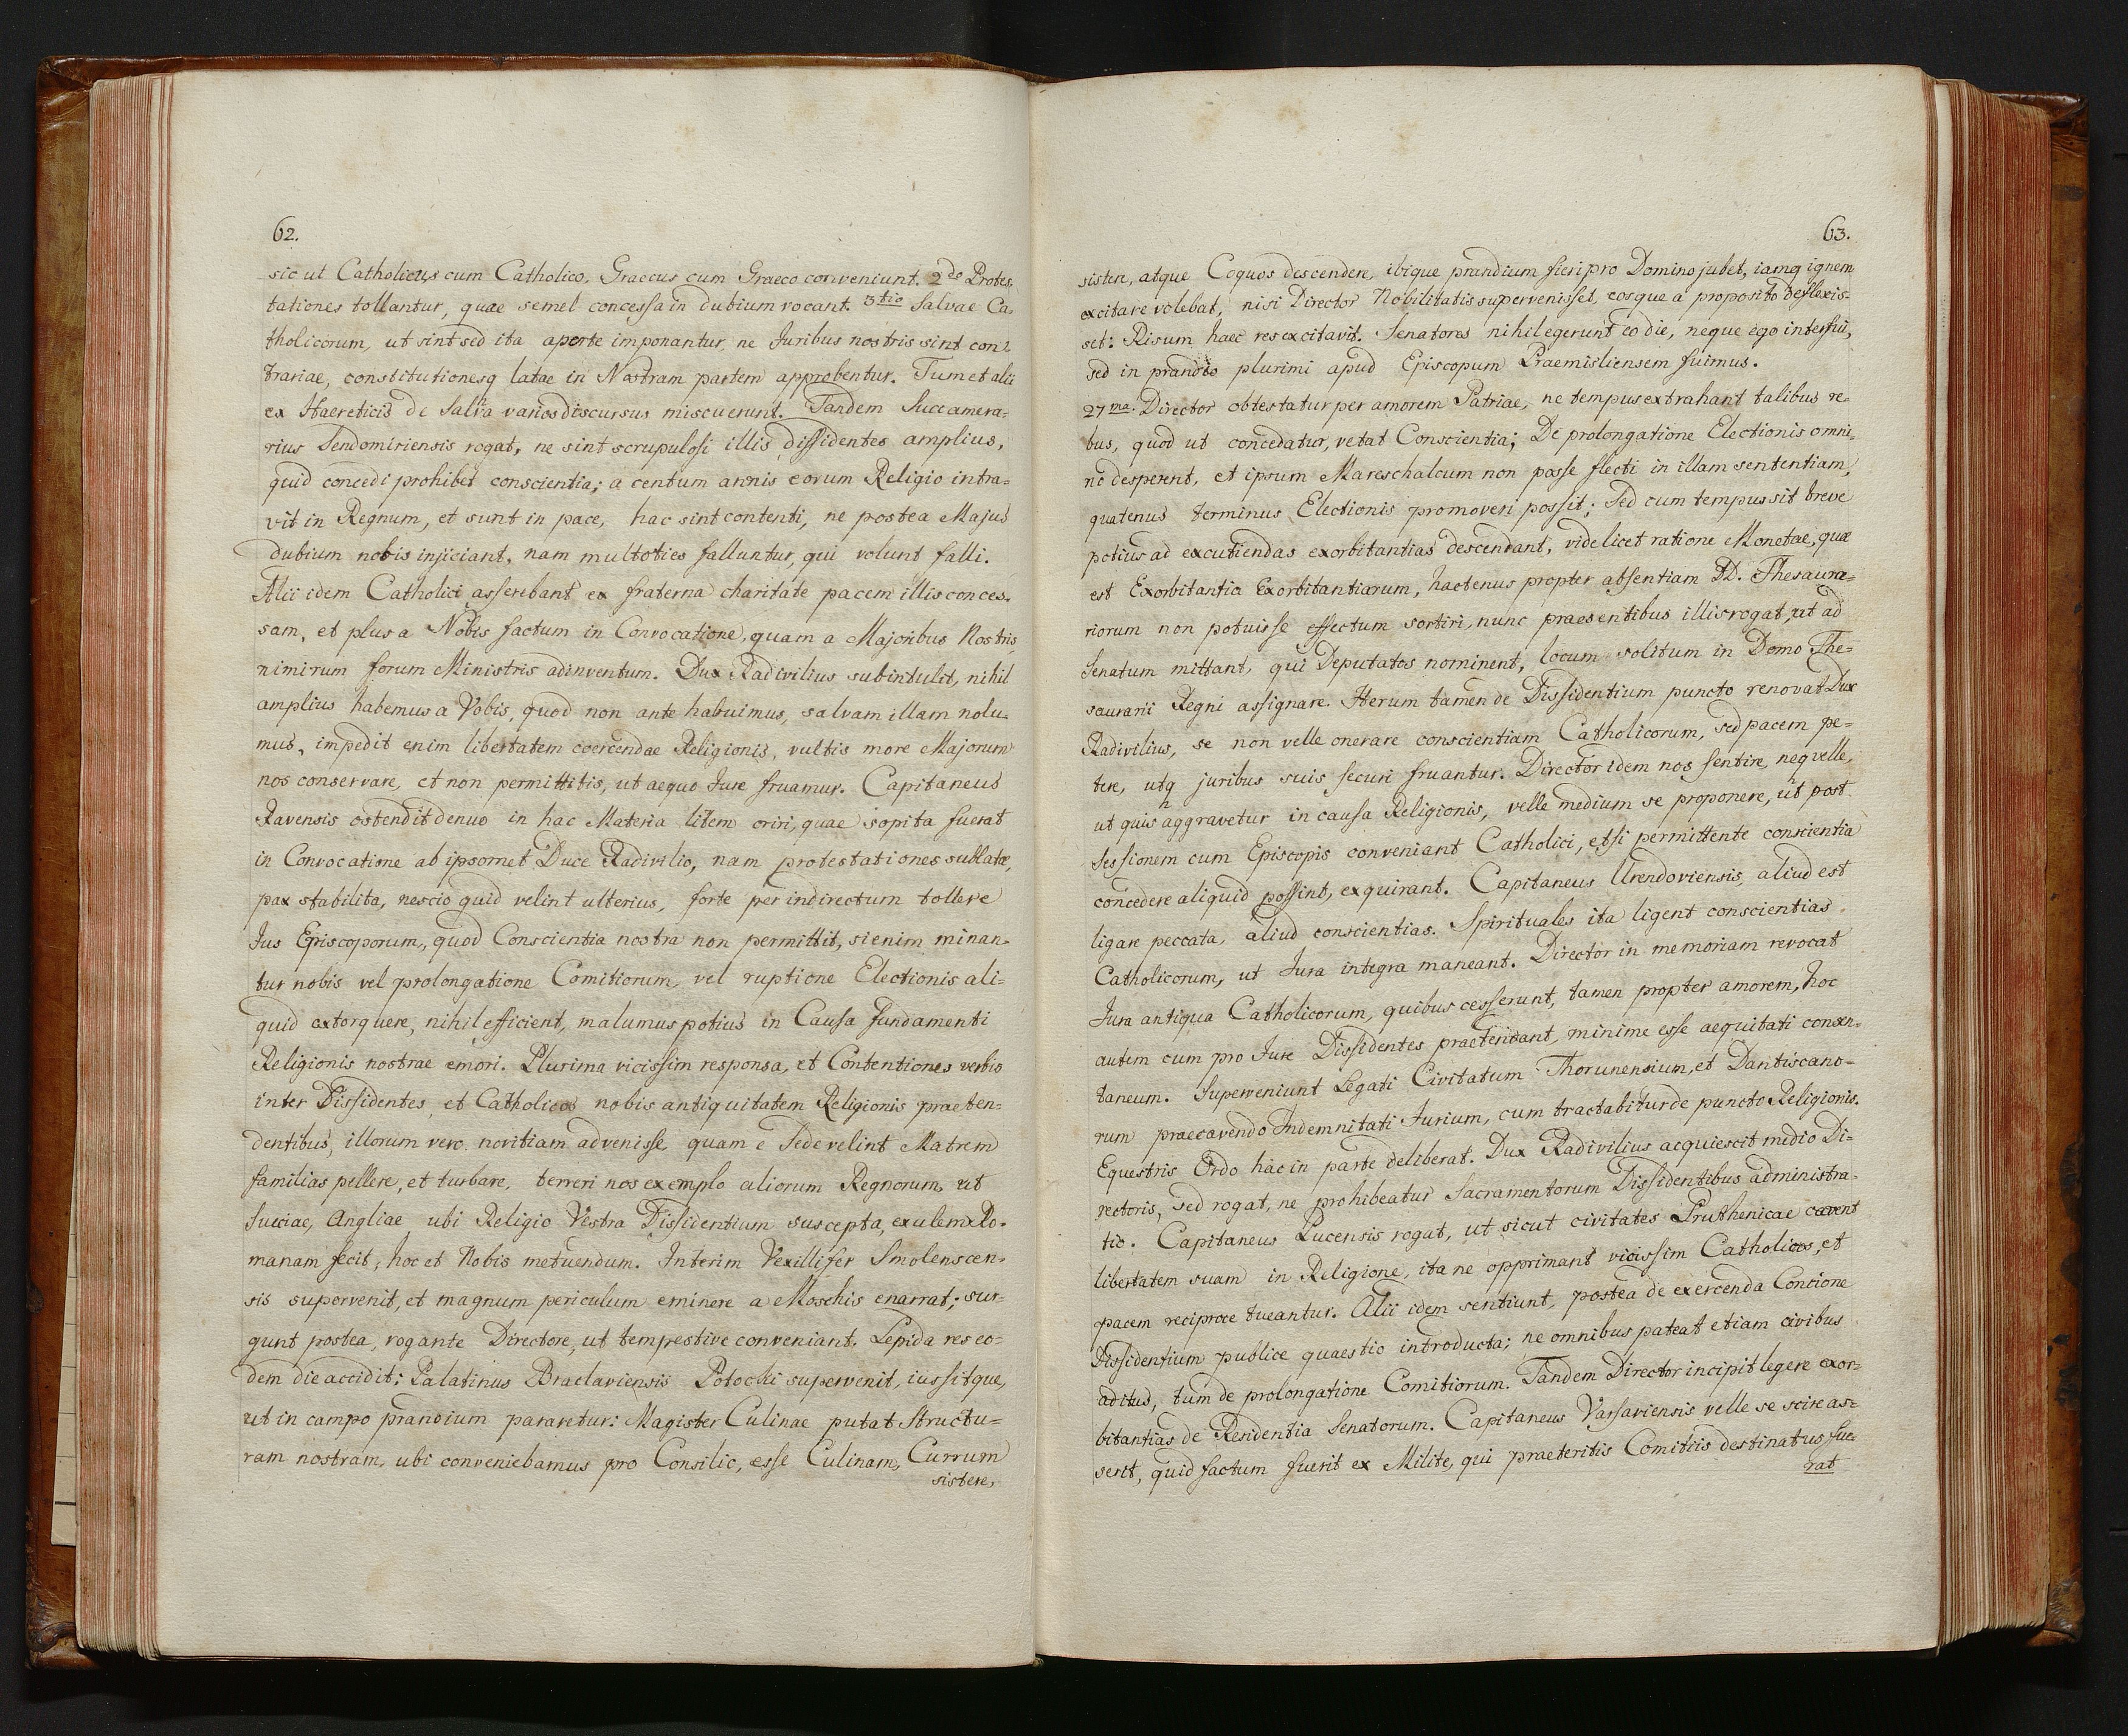 62.
sic ut Catholicus cum Catholico, Graecus cum Graeco conveniunt. 2do Protes,
tationes tollantur, quae semel concessa in dubium vocant. 3tio Salvae Ca,
tholicorum, ut sint sed ita aperte imponantur, ne Juribus nostris sint con,
trariae, constitutionesq latae in Nostram partem approbentur. Tum et alii
ex Haereticis de Salva varios discursus miscuerunt. Tandem Succamera=
rius Sendomiriensis rogat, ne sint scrupulosi illis dissidentes amplius,
quid concedi prohibet conscientia; a centum annis eorum Religio intra=
vit in Regnum, et sunt in pace, hac sint contenti, ne postea Majus
dubium nobis injiciant, nam multoties falluntur, qui volunt falli.
Alii idem Catholici asserebant ex fraterna charitate pacem illis conces,
sam, et plus a Nobis factum in Convocatione, quam a Majoribus Nostris,
nimirum forum Ministris adinventum. Dux Radivilius subintulit, nihil
amplius habemus a Vobis, quod non ante habuimus, salvam illam nolu,
mus, impedit enim libertatem coercendae Religionis, vultis more Majorum
nos conservare, et non permittitis, ut aequo Jure fruamur. Capitaneus
Ravensis ostendit denuo in hac Materia litem oriri, quae sopita fuerat
in Convocatione ab ipsomet Duce Radivilio, nam protestationes sublatae,
pax stabilita, nescio quid velint ulterius, forte per indirectum tollere
Jus Episcoporum, quod Conscientia nostra non permittit, si enim minan,
tur nobis vel prolongatione Comitiorum, vel ruptione Electionis ali=
quid extorquere, nihil efficient, malumus potius in Causa fundamenti
Religionis nostrae emori. Plurima vicissim responsa, et Contentiones verbis
inter Dissidentes, et Catholicos nobis antiquitatem Religionis praeten=
dentibus, illorum vero novitiam advenisse quam e Sede velint Matrem
familias pellere, et turbare, terreri nos exemplo aliorum Regnorum, ut
Sueciae, Angliae ubi Religio Vestra Dissidentium suscepta, exulem Ro=
manam fecit, hoc et Nobis metuendum. Interim Vexillifer Smolenscen=
sis supervenit, et magnum periculum eminere a Moschis enarrat; sur=
gunt postea, rogante Directore, ut tempestive conveniant. Lepida res eo=
dem die accidit: Palatinus Braclaviensis Potocki supervenit, iussitque,
ut in campo prandium pararetur: Magister Culinae putat Structu=
ram nostram, ubi conveniebamus pro Consilio, esse Culinam, Currum
sistere,
63.
sistere, atque Coquos descendere, ibique prandium fieri pro Domino jubet, iamq ignem
excitare volebat, nisi Director Nobilitatis supervenisset, eosque a proposito deflexis=
set: Risum haec res excitavit. Senatores nihil egerunt eo die, neque ego interfui,
sed in prandio plurimi apud Episcopum Praemisliensem fuimus.
27ma. Director obtestatur per amorem Patriae, ne tempus extrahant talibus re=
bus, quod ut concedatur, vetat Conscientia; De prolongatione Electionis omni=
no desperent, et ipsum Mareschalcum non posse flecti in illam sententiam,
quatenus terminus Electionis promoveri possit; Sed cum tempus sit breve
potius ad excutiendas exorbitantias descendant, videlicet ratione Monetae, quae
est Exorbitantia Exorbitantiarum, hactenus propter absentiam DD. Thesaura=
riorum non potuisse effectum sortiri, nunc praesentibus illis rogat, ut ad
Senatum mittant, qui Deputatos nominent, locum solitum in Domo The=
saurarii Regni assignare. Iterum tamen de Dissidentium puncto renovat Dux
Radivilius, se non velle onerare conscientiam Catholicorum, sed pacem pe=
tere, utq juribus suis securi fruantur. Director idem nos sentire, neq velle,
ut quis aggravetur in causa Religionis, velle medium se proponere, ut post
Sessionem cum Episcopis conveniant Catholici, etsi permittente conscientia
concedere aliquid possint, exquirant. Capitaneus Urendoviensis, aliud est
ligare peccata, aliud conscientias. Spirituales ita ligent conscientias
Catholicorum, ut Jura integra maneant. Director in memoriam revocat
Jura antiqua Catholicorum, quibus cesserunt, tamen propter amorem, hoc
autem cum pro Jure Dissidentes praetendant, minime esse aequitati consen=
taneum. Superveniunt Legati Civitatum Thorunensium, et Dantiscano=
rum praecavendo Indemnitati Jurium, cum tractabitur de puncto Religionis.
Equestris Ordo hac in parte deliberat. Dux Radivilius acquiescit medio Di=
rectoris, sed rogat, ne prohibeatur Sacramentorum Dissidentibus administra=
tio. Capitaneus Lucensis rogat, ut sicut civitates Pruthenicae cavent
libertatem suam in Religione, ita ne opprimant vicissim Catholicos, et
pacem reciproce tueantur. Alii idem sentiunt, postea de exercenda Concione
Dissidentium publice quaestio introducta; ne omnibus pateat etiam civibus
aditus, tum de prolongatione Comitiorum. Tandem Director incipit legere exor=
bitantias de Residentia Senatorum. Capitaneus Varsaviensis velle se scire as=
serit, quid factum fuerit ex Milite, qui praeteritis Comitiis destinatus fue=
rat